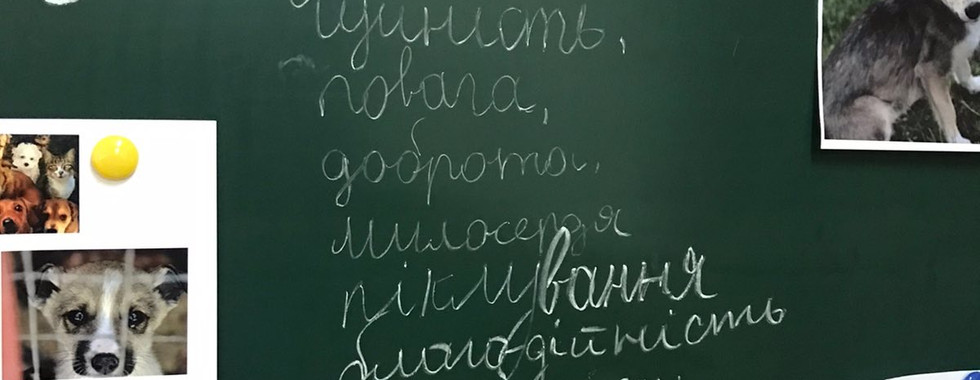 чуйність,
повага,
доброта,
милосердя
піклування
благодійність